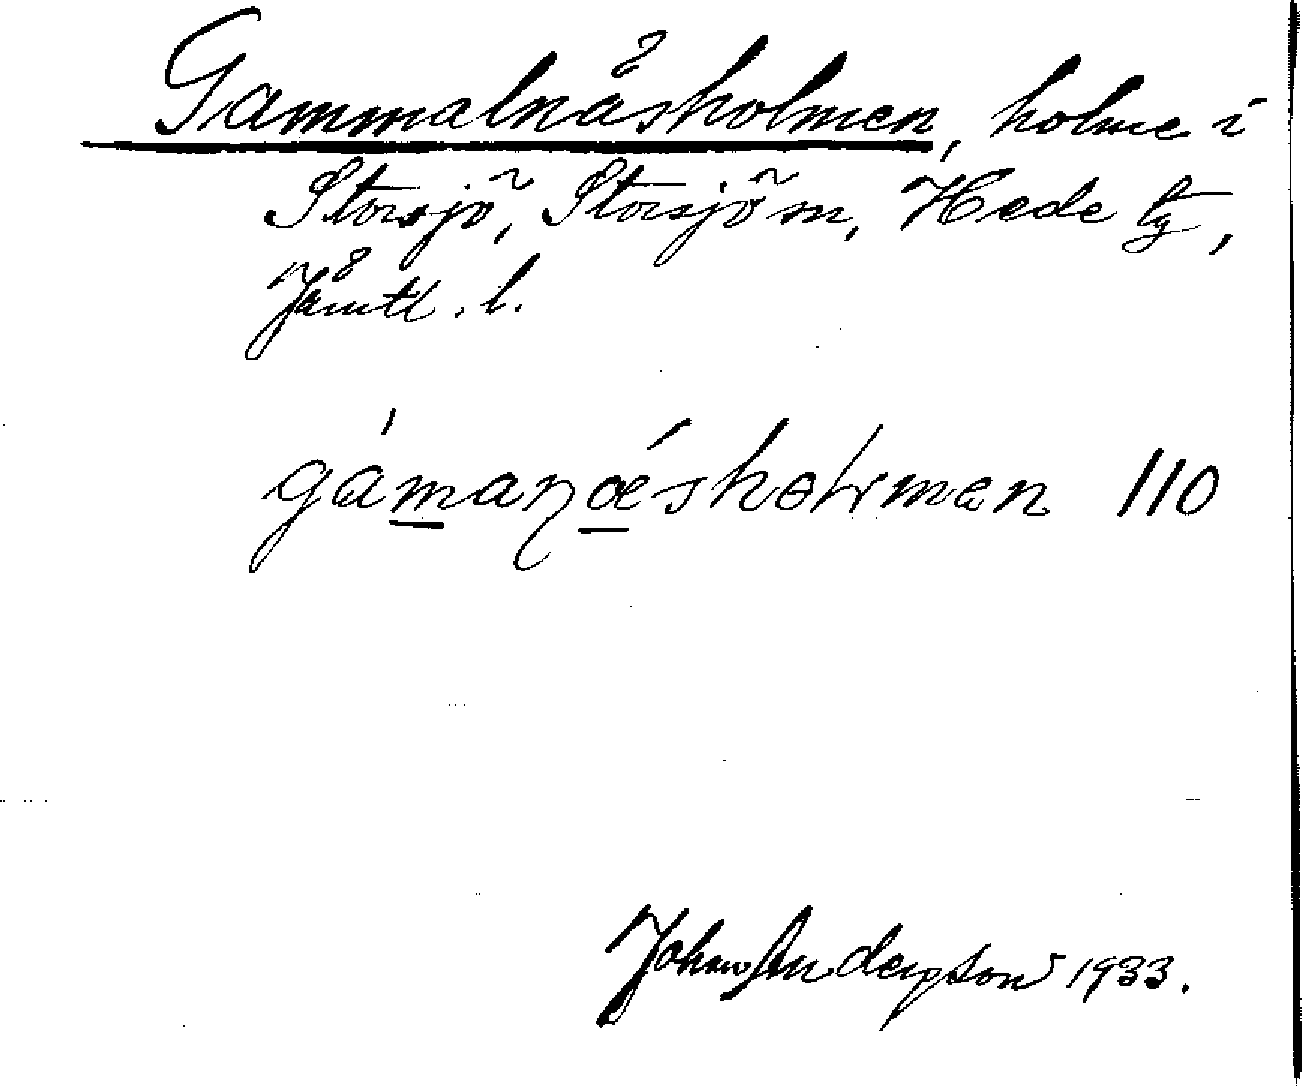 Gammalnåsholmen, holme i
Storsjö, Storsjö sn, Hede tg,
Jämtl. l.
gámaɳœ́shoɫmen 110
Johan Anderson 1933.